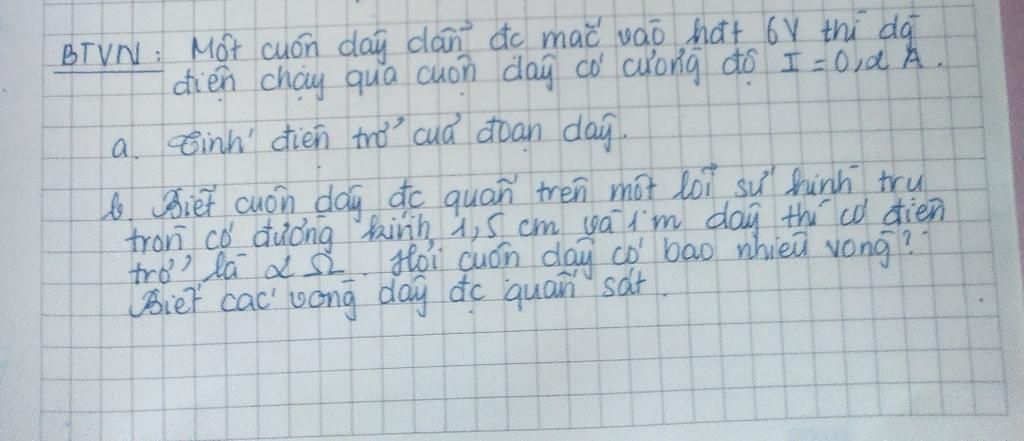 BTVN: Một cuộn dây dẫn đc mắc vào hđt 6V thì dđ
điện chạy qua cuộn dây có cường độ I = 0,2 A.
a. Tính điện trở của đoạn dây.
b. Biết cuộn dây đc quấn trên một lõi sứ hình trụ
tròn có đường kính 1,5 cm và 1m dây thì có điện
trở là 2 Ω. Hỏi cuộn dây có bao nhiêu vòng?
Biết các vòng dây đc quấn sát.